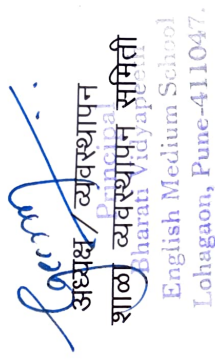 अध्यक्ष / व्यवस्थापन
शाळा व्यवस्थापन समिती
Principal
Bharati Vidyapeeth
English Medium School
Lohagaon, Pune-411047.